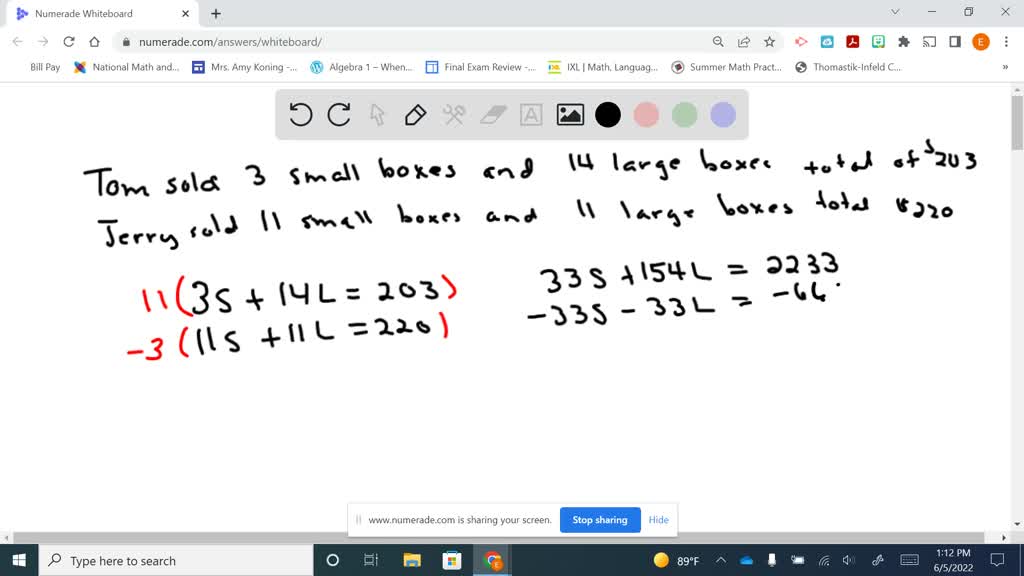 Numerade Whiteboard
numerade.com/answers/whiteboard/
Bill Pay National Math and... Mrs. Amy Koning -... Algebra 1 – When... Final Exam Review -... IXL | Math, Languag... Summer Math Pract... Thomastik-Infeld C... »
A
Tom sold 3 small boxes and 14 large boxes total of $203
Jerry sold 11 small boxes and 11 large boxes total $220
11(3S + 14L = 203)
-3(11S + 11L = 220)
33S + 154L = 2233
-33S - 33L = -66
www.numerade.com is sharing your screen. Stop sharing Hide
Type here to search
89°F
1:12 PM
6/5/2022